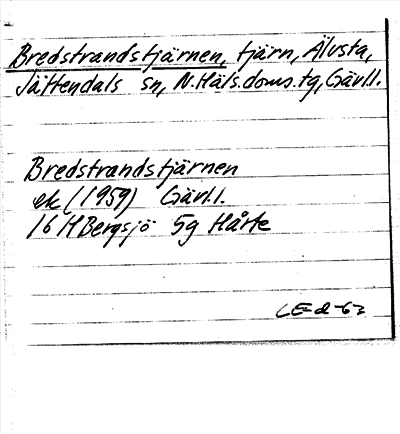 Bredstrandstjärnen, tjärn, Älvsta,
Jättendals sn, N.Häls.doms.tg, Gävl.l.
Bredstrandstjärnen
ek (1959) Gävl.l.
16 H Bergsjö 5g Hårte